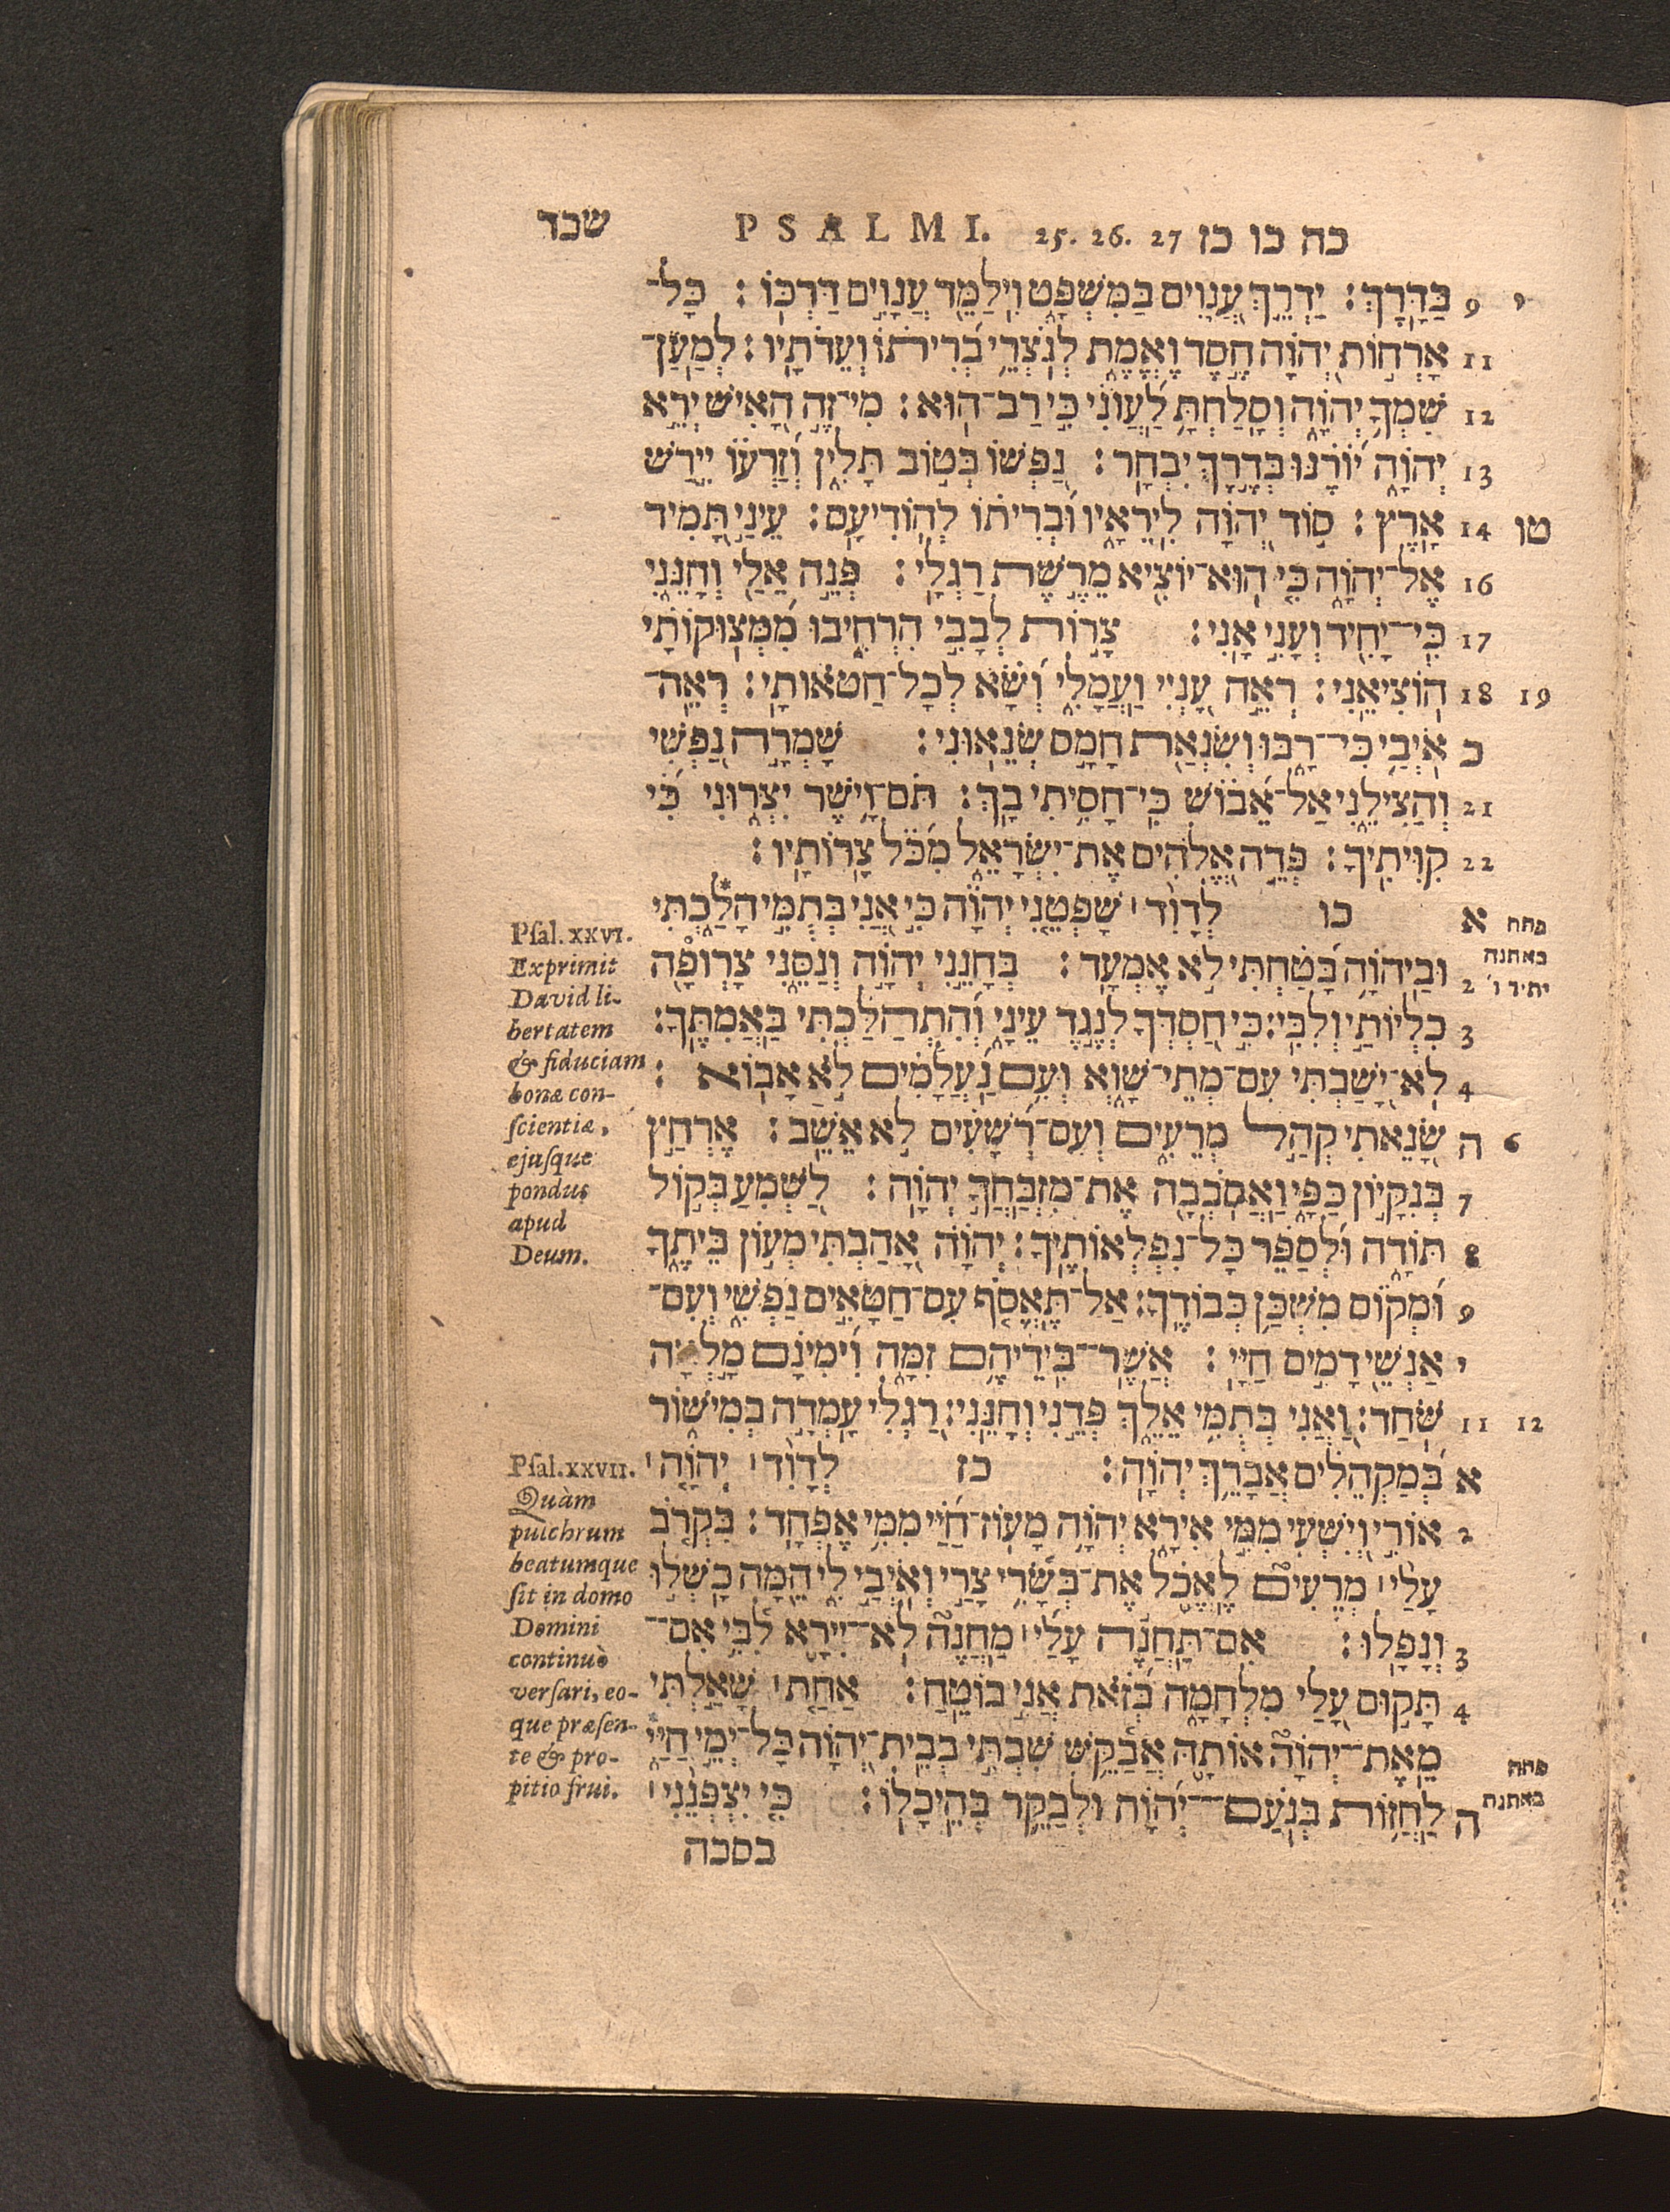 שכד PSALMI. 25. 26. 27 כה כו כז
בַּדָּרֶךְ׃ יַדְרֵךְ עֲנָוִים בַּמִּשְׁפָּט וִילַמֵּד עֲנָוִים דַּרְכּוֹ׃ כָּל־ 9 י
אָרְחוֹת יְהוָה חֶסֶד וֶאֱמֶת לְנֹצְרֵי בְרִיתוֹ וְעֵדֹתָיו׃ לְמַעַן־ 11
שִׁמְךָ יְהוָה וְסָלַחְתָּ לַעֲוֹנִי כִּי רַב־הוּא׃ מִי־זֶה הָאִישׁ יְרֵא 12
יְהוָה יוֹרֶנּוּ בְּדֶרֶךְ יִבְחָר׃ נַפְשׁוֹ בְּטוֹב תָּלִין וְזַרְעוֹ יִירַשׁ 13
אָרֶץ׃ סוֹד יְהוָה לִירֵאָיו וּבְרִיתוֹ לְהוֹדִיעָם׃ עֵינַי תָּמִיד 14 טו
אֶל־יְהוָה כִּי הוּא־יוֹצִיא מֵרֶשֶׁת רַגְלָי׃ פְּנֵה אֵלַי וְחָנֵּנִי 16
כִּי־יָחִיד וְעָנִי אָנִי׃ צָרוֹת לְבָבִי הִרְחִיבוּ מִמְּצוּקוֹתַי 17
הוֹצִיאֵנִי׃ רְאֵה עָנְיִי וַעֲמָלִי וְשָׂא לְכָל־חַטֹּאותָי׃ רְאֵה־ 18 19
אֹיְבַי כִּי־רָבּוּ וְשִׂנְאַת חָמָס שְׂנֵאוּנִי׃ שָׁמְרָה נַפְשִׁי כ
וְהַצִּילֵנִי אַל־אֵבוֹשׁ כִּי־חָסִיתִי בָךְ׃ תֹּם־וָיֹשֶׁר יִצְּרוּנִי כִּי 21
קִוִּיתִיךָ׃ פְּדֵה אֱלֹהִים אֶת־יִשְׂרָאֵל מִכֹּל צָרוֹתָיו׃ 22
כו לְדָוִד׀ שָׁפְטֵנִי יְהוָה כִּי אֲנִי בְּתֻמִּי הָלַכְתִּי* א
וּבַיהוָה בָּטַחְתִּי לֹא אֶמְעָד׃ בְּחָנֵנִי יְהוָה וְנַסֵּנִי צָרֳופָה 2
כִלְיוֹתַי וְלִבִּי׃ כִּי חַסְדְּךָ לְנֶגֶד עֵינָי וְהִתְהַלַּכְתִּי בַּאֲמִתֶּךָ׃ 3
לֹא־יָשַׁבְתִּי עִם־מְתֵי־שָׁוְא וְעִם נַעֲלָמִים לֹא אָבוֹא׃ 4
שָׂנֵאתִי קְהַל מְרֵעִים וְעִם־רְשָׁעִים לֹא אֵשֵׁב׃ אֶרְחַץ ה 6
בְּנִקָּיוֹן כַּפָּי וַאֲסֹבְבָה אֶת־מִזְבַּחֲךָ יְהוָה׃ לַשְׁמִעַ בְּקוֹל 7
תּוֹדָה וּלְסַפֵּר כָּל־נִפְלְאוֹתֶיךָ׃ יְהוָה אָהַבְתִּי מְעוֹן בֵּיתֶךָ 8
וּמְקוֹם מִשְׁכַּן כְּבוֹדֶךָ׃ אַל־תֶּאֱסֹף עִם־חַטָּאִים נַפְשִׁי וְעִם־ 9
אַנְשֵׁי דָמִים חַיָּי׃ אֲשֶׁר־בִּידֵיהֶם זִמָּה וִימִינָם י
שֹּׁחַד׃ וַאֲנִי בְּתֻמִּי אֵלֵךְ פְּדֵנִי וְחָנֵּנִי׃ רַגְלִי עָמְדָה בְמִישׁוֹר 11 12
בְּמַקְהֵלִים אֲבָרֵךְ יְהוָה׃ כז לְדָוִד׀ יְהוָה׀ א
אוֹרִי וְיִשְׁעִי מִמִּי אִירָא יְהוָה מָעוֹז־חַיַּי מִמִּי אֶפְחָד׃ בִּקְרֹב 2
עָלַי׀ מְרֵעִים לֶאֱכֹל אֶת־בְּשָׂרִי צָרַי וְאֹיְבַי לִי הֵמָּה כָשְׁלוּ
וְנָפָלוּ׃ אִם־תַּחֲנֶה עָלַי׀ מַחֲנֶה לֹא־יִירָא לִבִּי אִם־ 3
תָּקוּם עָלַי מִלְחָמָה בְּזֹאת אֲנִי בוֹטֵחַ׃ אַחַת׀ שָׁאַלְתִּי 4
מֵאֵת־יְהוָה אוֹתָהּ אֲבַקֵּשׁ שִׁבְתִּי בְּבֵית־יְהוָה כָּל־יְמֵי חַיַּי*
לַחֲזוֹת בְּנֹעַם־יְהוָה וּלְבַקֵּר בְּהֵיכָלוֹ׃ כִּי יִצְפְּנֵנִי׀ ה
בסכה
פתח
באתנח
ית׳יר ו׳
פתח
באתנח
Psal. XXVI.
Exprimit
David li-
bertatem
& fiduciam
bonæ con-
scientiæ,
ejusque
pondus
apud
Deum.
Psal. XXVII.
Quàm
pulchrum
beatumque
sit in domo
Domini
continuò
versari, eo-
que præsen-
te & pro-
pitio frui.